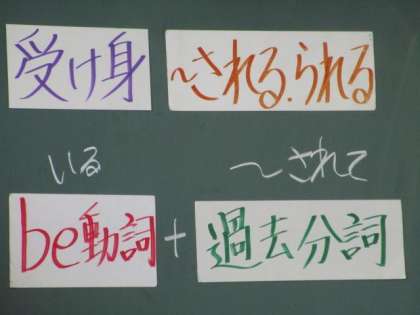 受け身 〜される.られる
いる 〜されて
be動詞 + 過去分詞